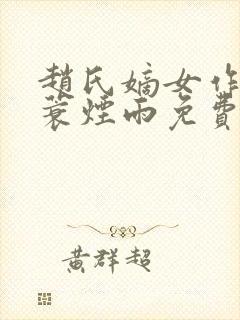 趙氏嫡女作
蓑煙雨免費
黃群超